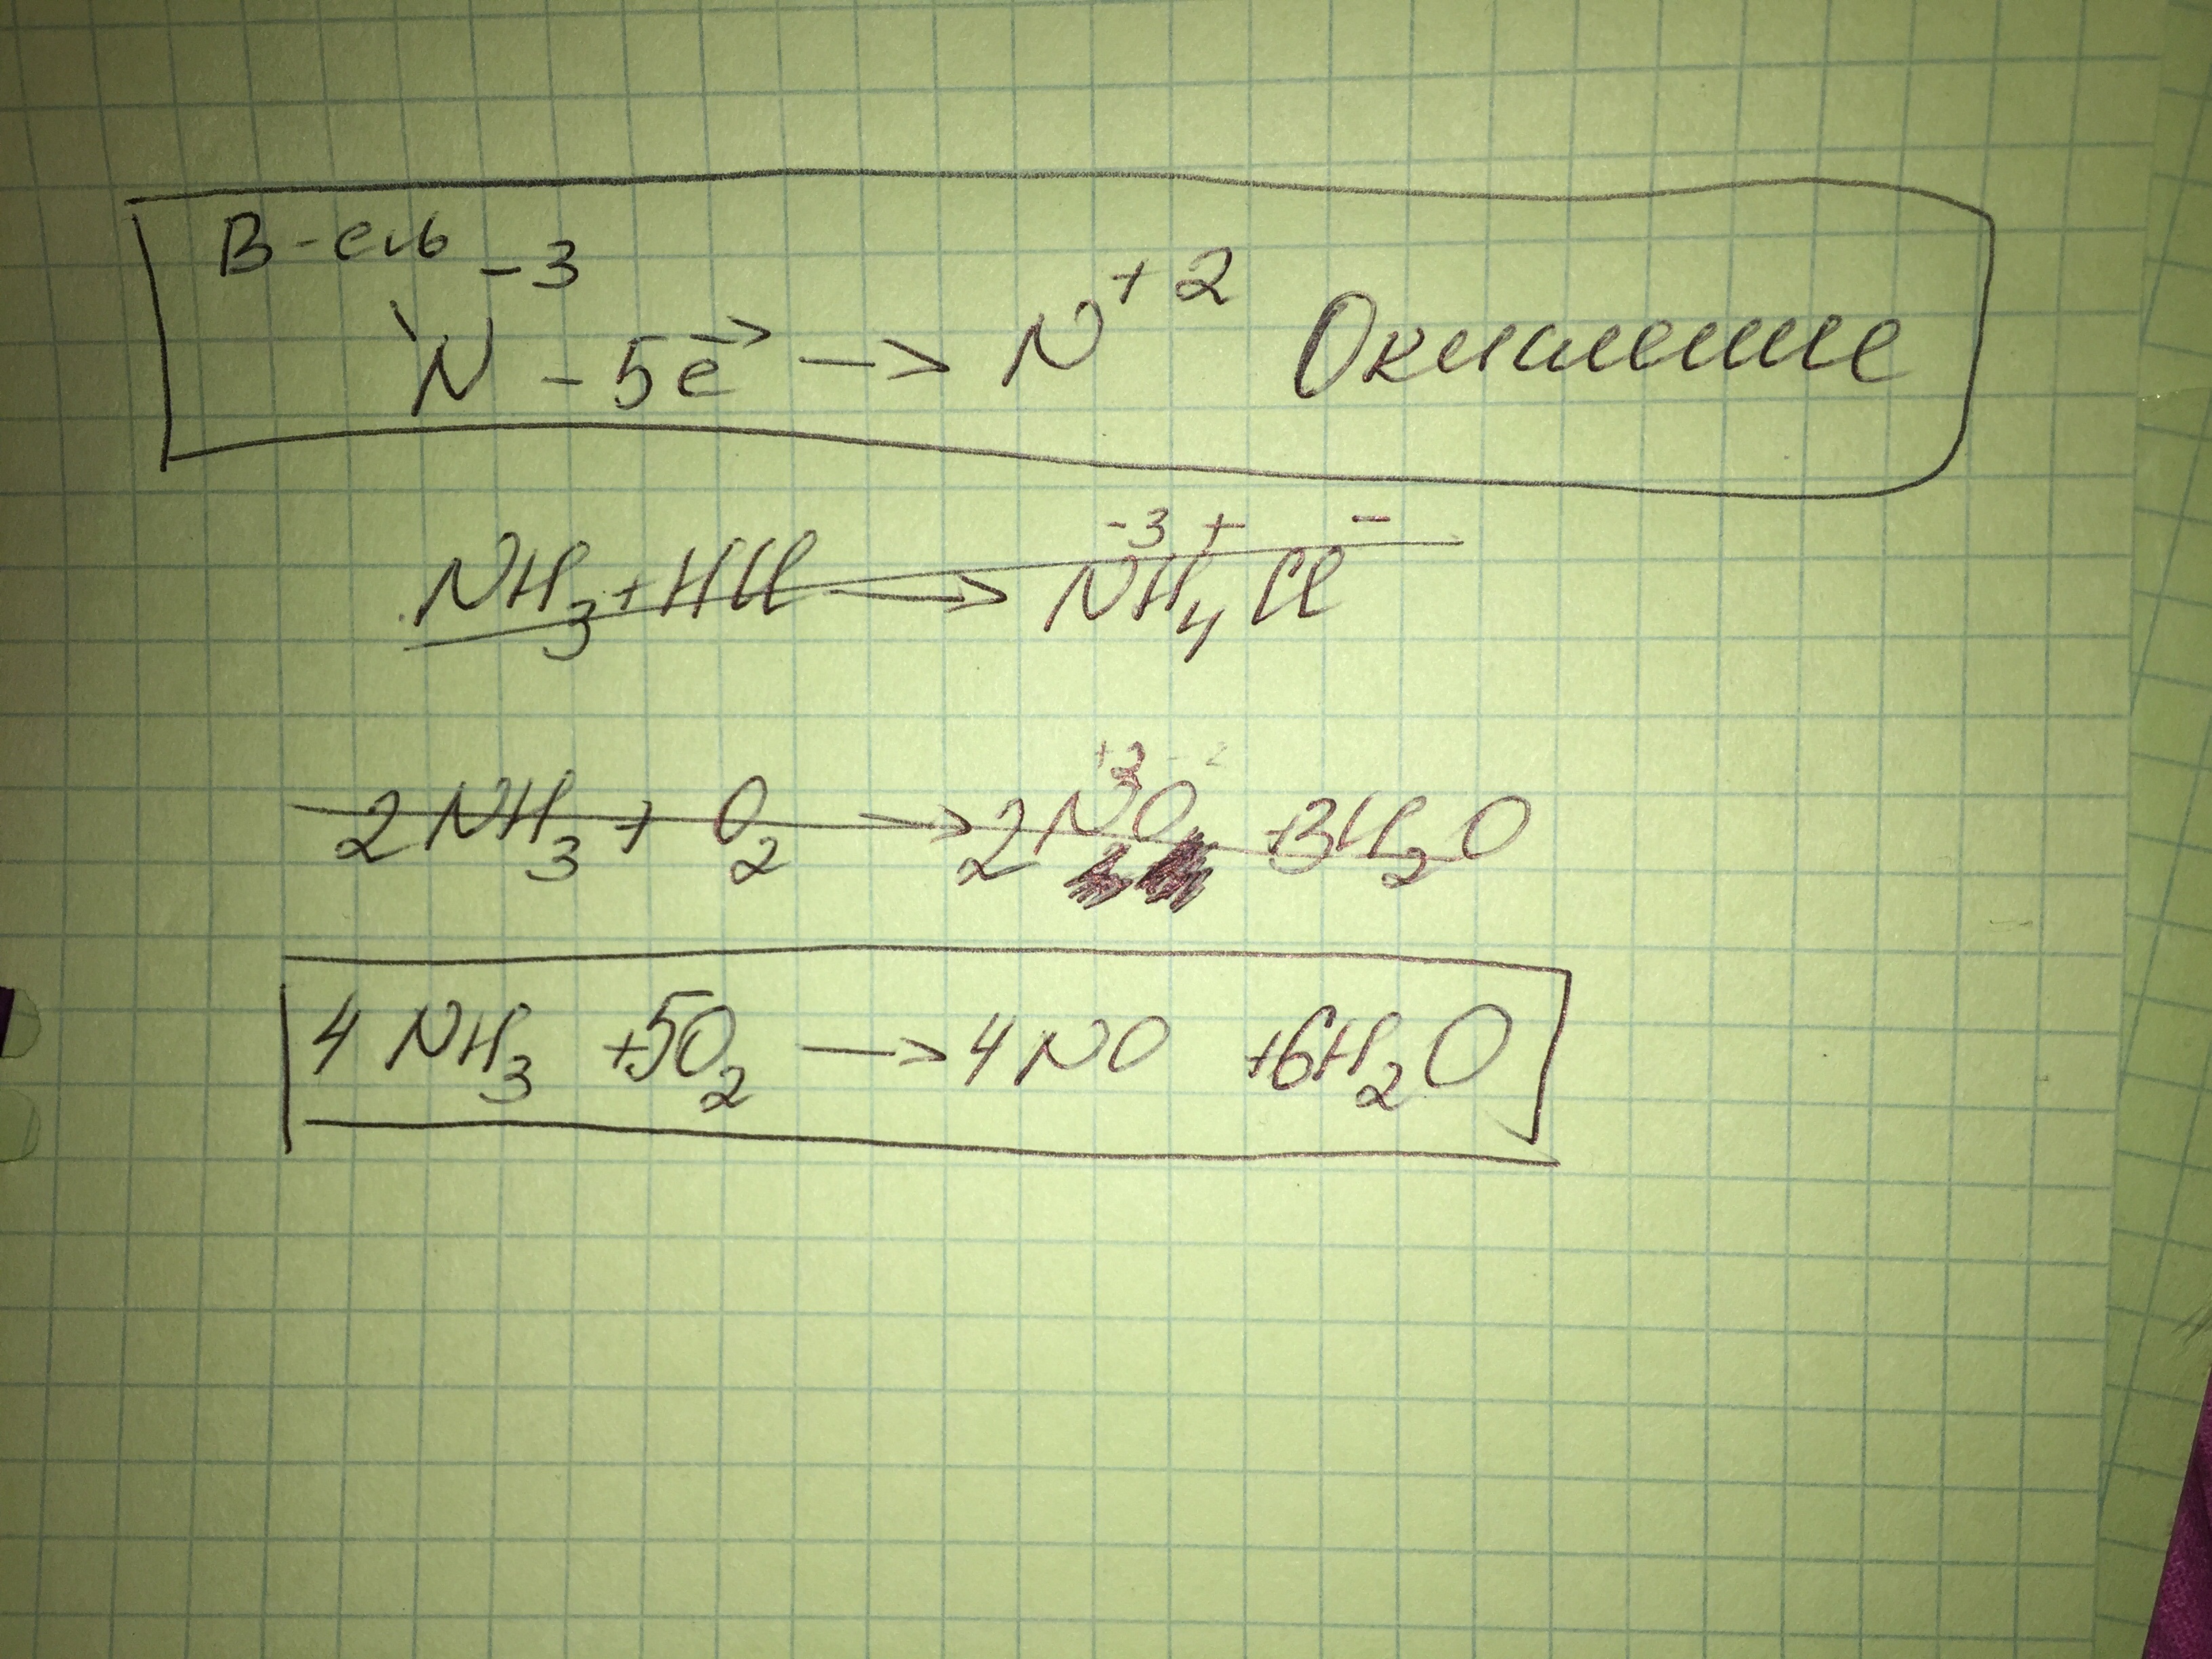 В-ель
N⁻³ - 5e → N⁺² Окисление
NH₃ + HCl → N⁻³H₄⁺Cl⁻
2NH₃ + O₂ → 2N⁺²O⁻² + 3H₂O
4NH₃ + 5O₂ → 4NO + 6H₂O